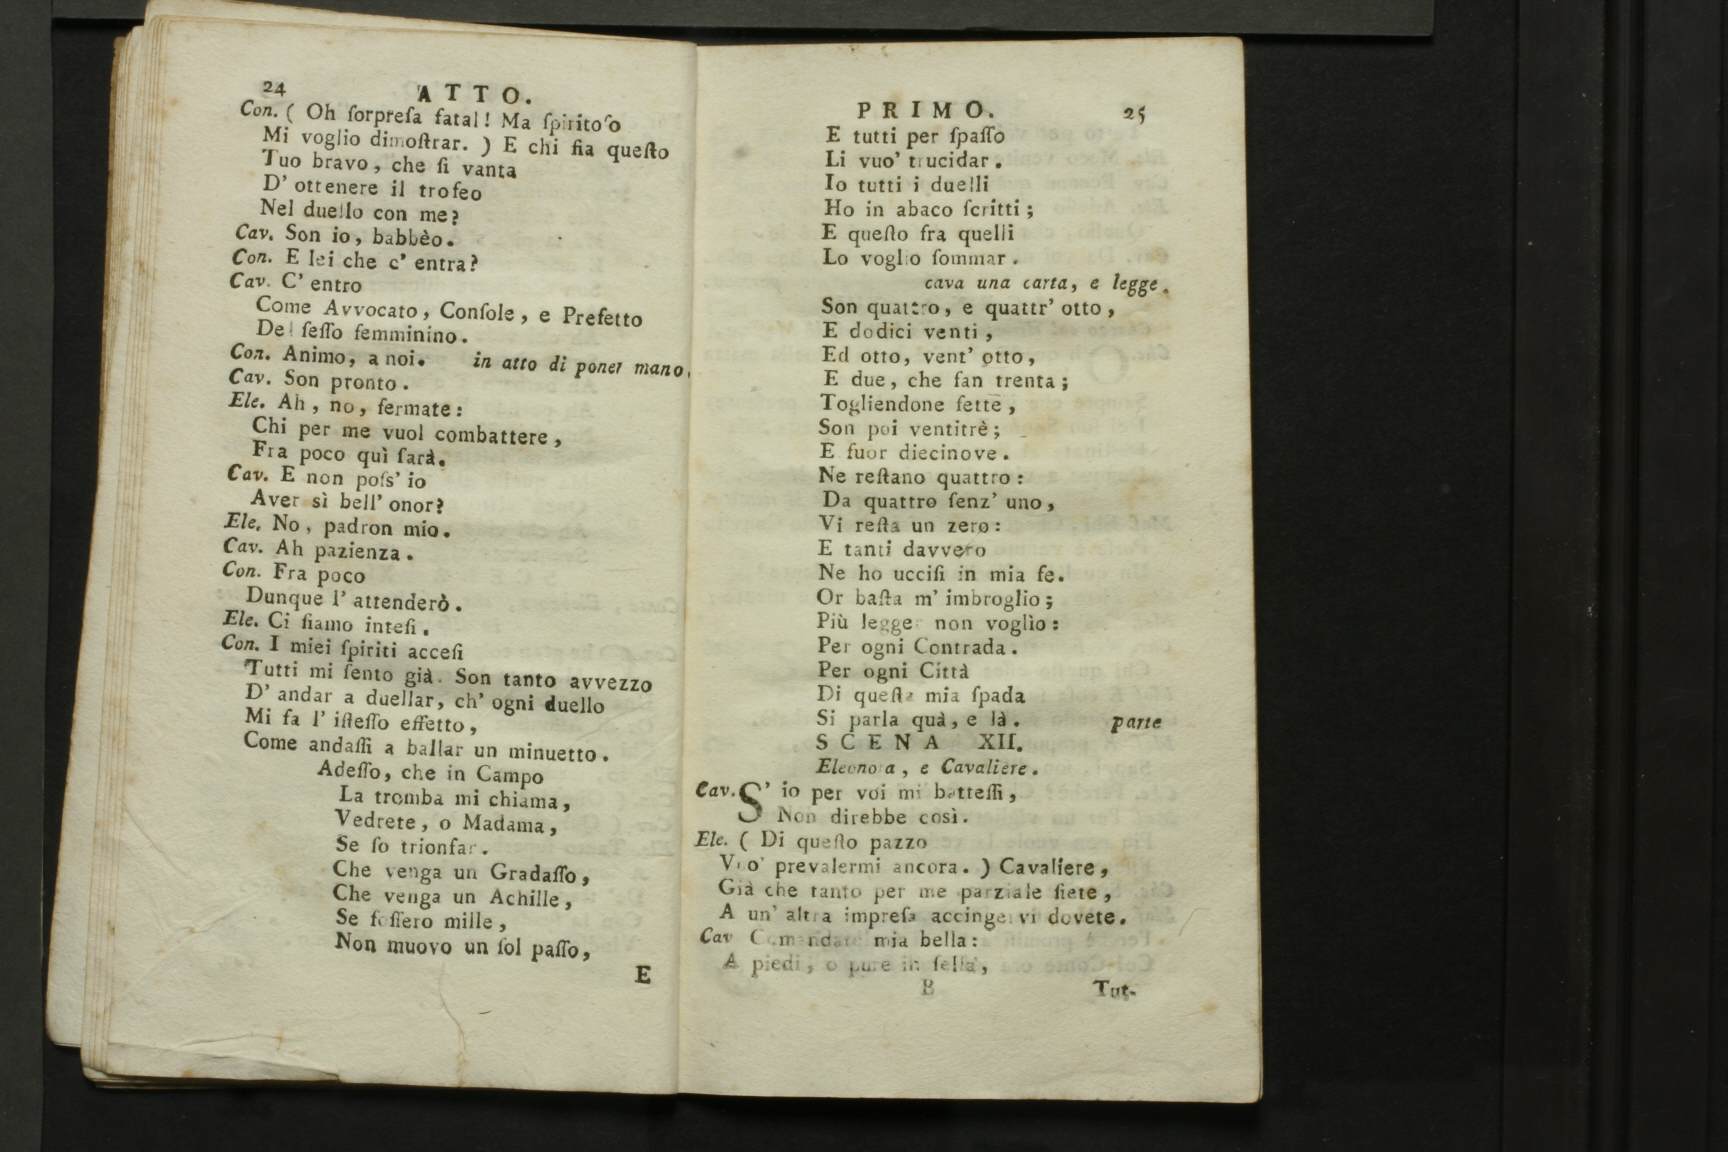 24 ATTO.
Con. ( Oh ſorpreſa fatal! Ma ſpiritoſo
Mi voglio dimoſtrar. ) E chi fia queſto
Tuo bravo, che ſi vanta
D' ottenere il trofeo
Nel duello con me?
Cav. Son io, babbèo.
Con. E lei che c' entra?
Cav. C' entro
Come Avvocato, Conſole, e Prefetto
Del ſeſſo femminino.
Con. Animo, a noi. in atto di poner mano.
Cav. Son pronto.
Ele. Ah, no, fermate:
Chi per me vuol combattere,
Fra poco quì ſarà.
Cav. E non poſs' io
Aver sì bell' onor?
Ele. No, padron mio.
Cav. Ah pazienza.
Con. Fra poco
Dunque l' attenderò.
Ele. Ci ſiamo inteſi.
Con. I miei ſpiriti acceſi
Tutti mi ſento già. Son tanto avvezzo
D' andar a duellar, ch' ogni duello
Mi fa l' iſteſſo effetto,
Come andaſſi a ballar un minuetto.
Adeſſo, che in Campo
La tromba mi chiama,
Vedrete, o Madama,
Se ſo trionfar.
Che venga un Gradaſſo,
Che venga un Achille,
Se foſſero mille,
Non muovo un ſol paſſo,
E
PRIMO. 25
E tutti per ſpaſſo
Li vuo' trucidar.
Io tutti i duelli
Ho in abaco ſcritti;
E queſto fra quelli
Lo voglio ſommar.
cava una carta, e legge.
Son quattro, e quattr' otto,
E dodici venti,
Ed otto, vent' otto,
E due, che fan trenta;
Togliendone ſette,
Son poi ventitrè;
E fuor diecinove.
Ne reſtano quattro:
Da quattro ſenz' uno,
Vi reſta un zero:
E tanti davvero
Ne ho ucciſi in mia fe.
Or baſta m' imbroglio;
Più legger non voglio:
Per ogni Contrada.
Per ogni Città
Di queſta mia ſpada
Si parla quà, e là. parte
SCENA XII.
Eleonora, e Cavaliere.
Cav. S' io per voi mi batteſſi,
Non direbbe così.
Ele. ( Di queſto pazzo
Vuo' prevalermi ancora. ) Cavaliere,
Già che tanto per me parziale ſiete,
A un' altra impreſa accingervi dovete.
Cav Comandate mia bella:
A piedi, o pure in ſella,
B Tut-